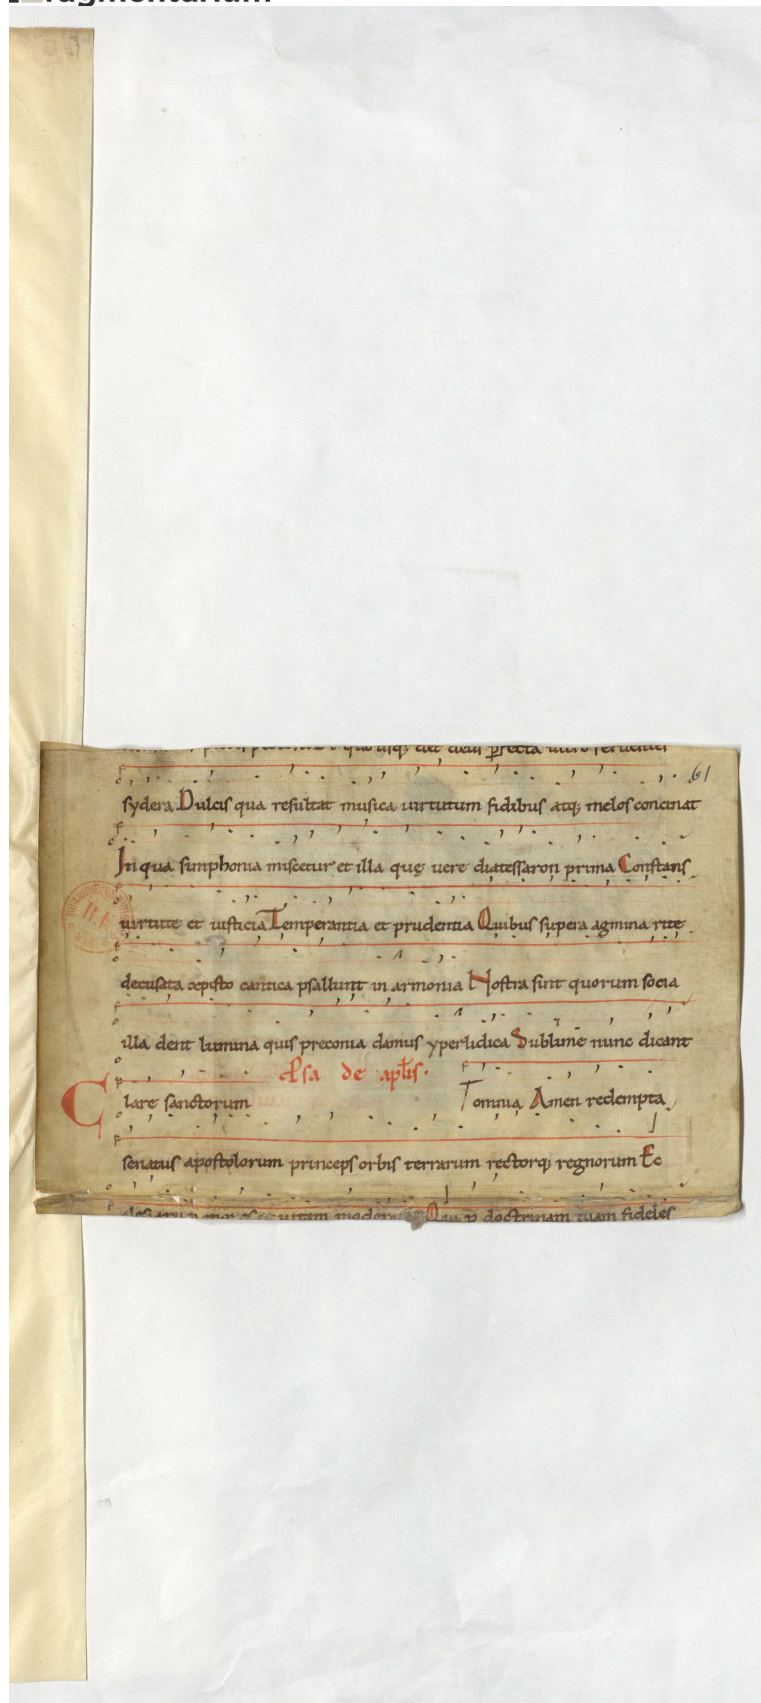 fragmentarium
quousq; det deus
61
sydera Dulcis qua resultat musica uirtutum fidibus atq; melos concinat
In qua simphonia miscetur et illa quę uere diatessaron prima Constans
uirtute et iusticia Temperantia et prudentia Quibus supera agmina rite
decusata cantica psallunt in armonia Nostra sint quorum socia
illa dent lumina quis preconia damus yperlidica Sublime nunc dicant
Psa de aplis.
Clare sanctorum Tomnia Amen redempta
senatus apostolorum princeps orbis terrarum rectorq; regnorum Ec
uitam Qui doctrinam tuam fideles